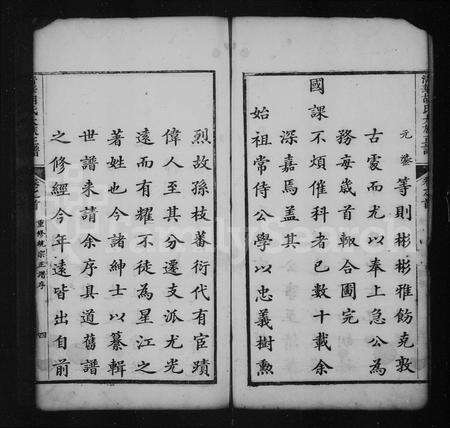 元鎣等則彬彬雅飭克敦
古處而尤以奉上急公為
務每歲首輙合圖完
國課不煩催科者已數十載余
深嘉焉蓋其
始祖常侍公學以忠義樹勲
烈故孫枝蕃衍代有宦蹟
偉人至其分遷支派尤光
遠而有耀不徒為星江之
著姓也今諸紳士以纂輯
世譜來請余序具道舊譜
之修經今年遠皆出自前
重修統宗正譜序
四
FamilySearch